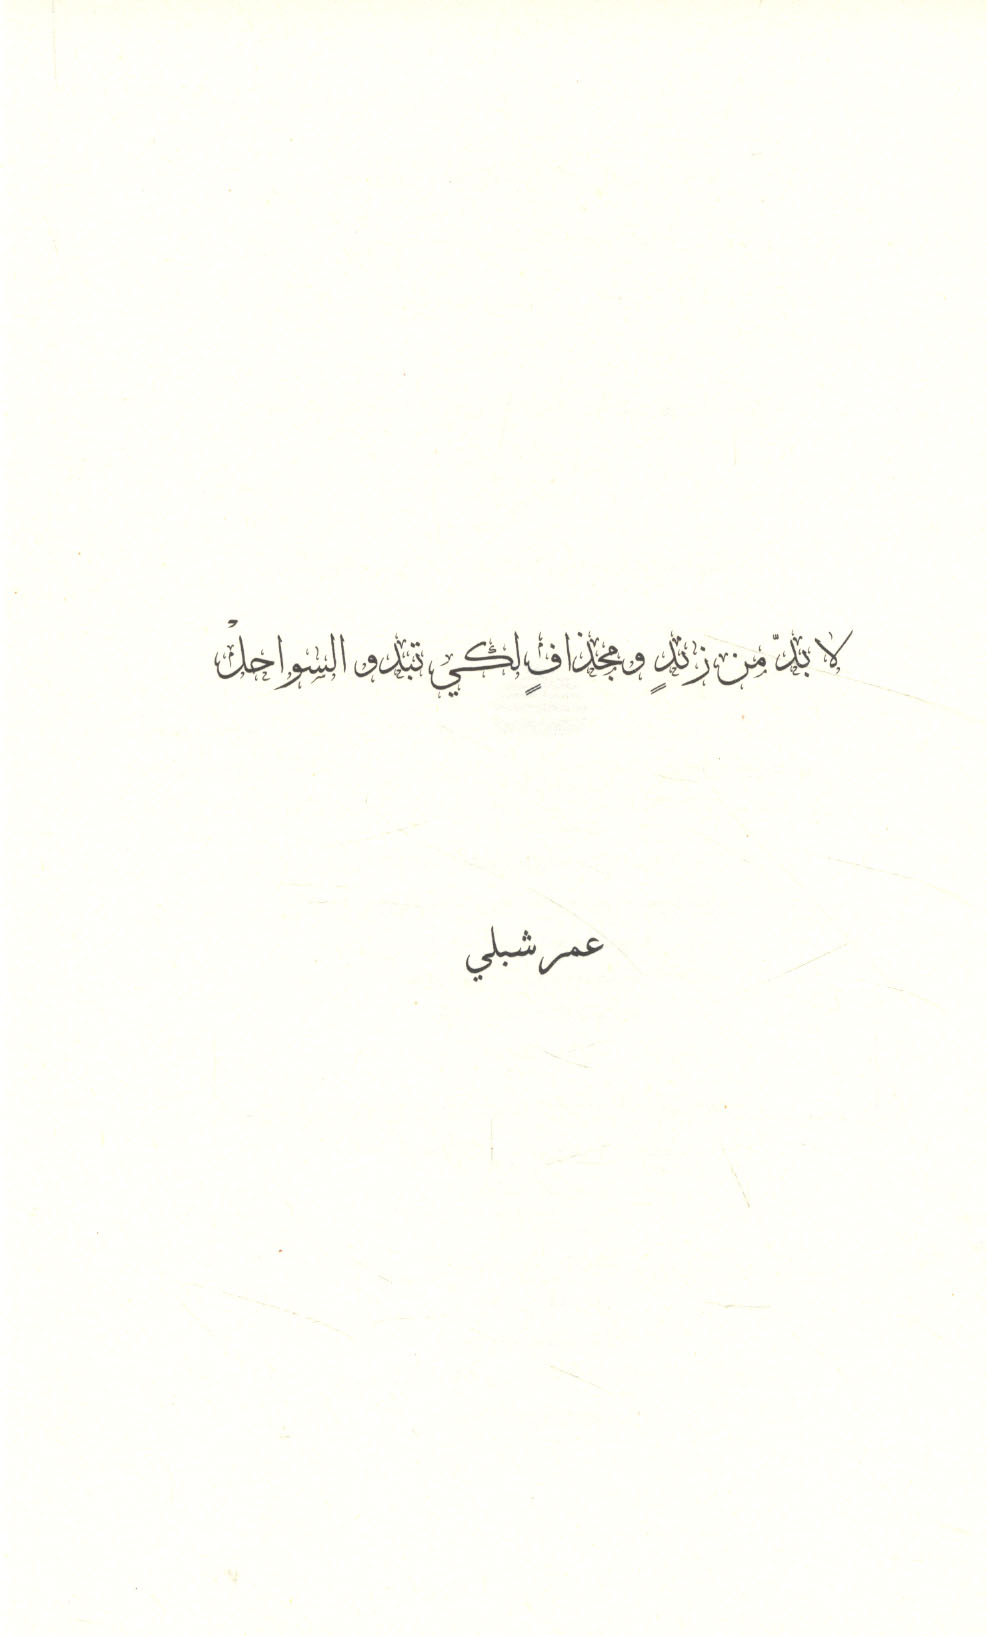 لا بدّ من زندٍ ومجذافٍ لكي تبدو السواحلْ
عمر شبلي